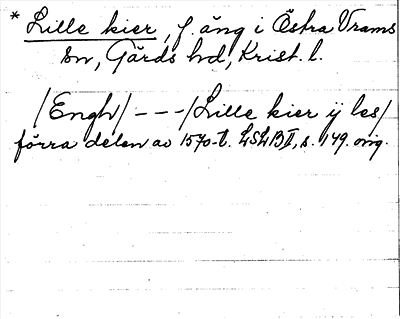 * Lille kier, f. äng i Östra Vrams
sn, Gärds hd, Krist. l.
/Engh/ - - - /Lille kier ij les/
förra delen av 1570-t. LSLBII, s. 149. orig.